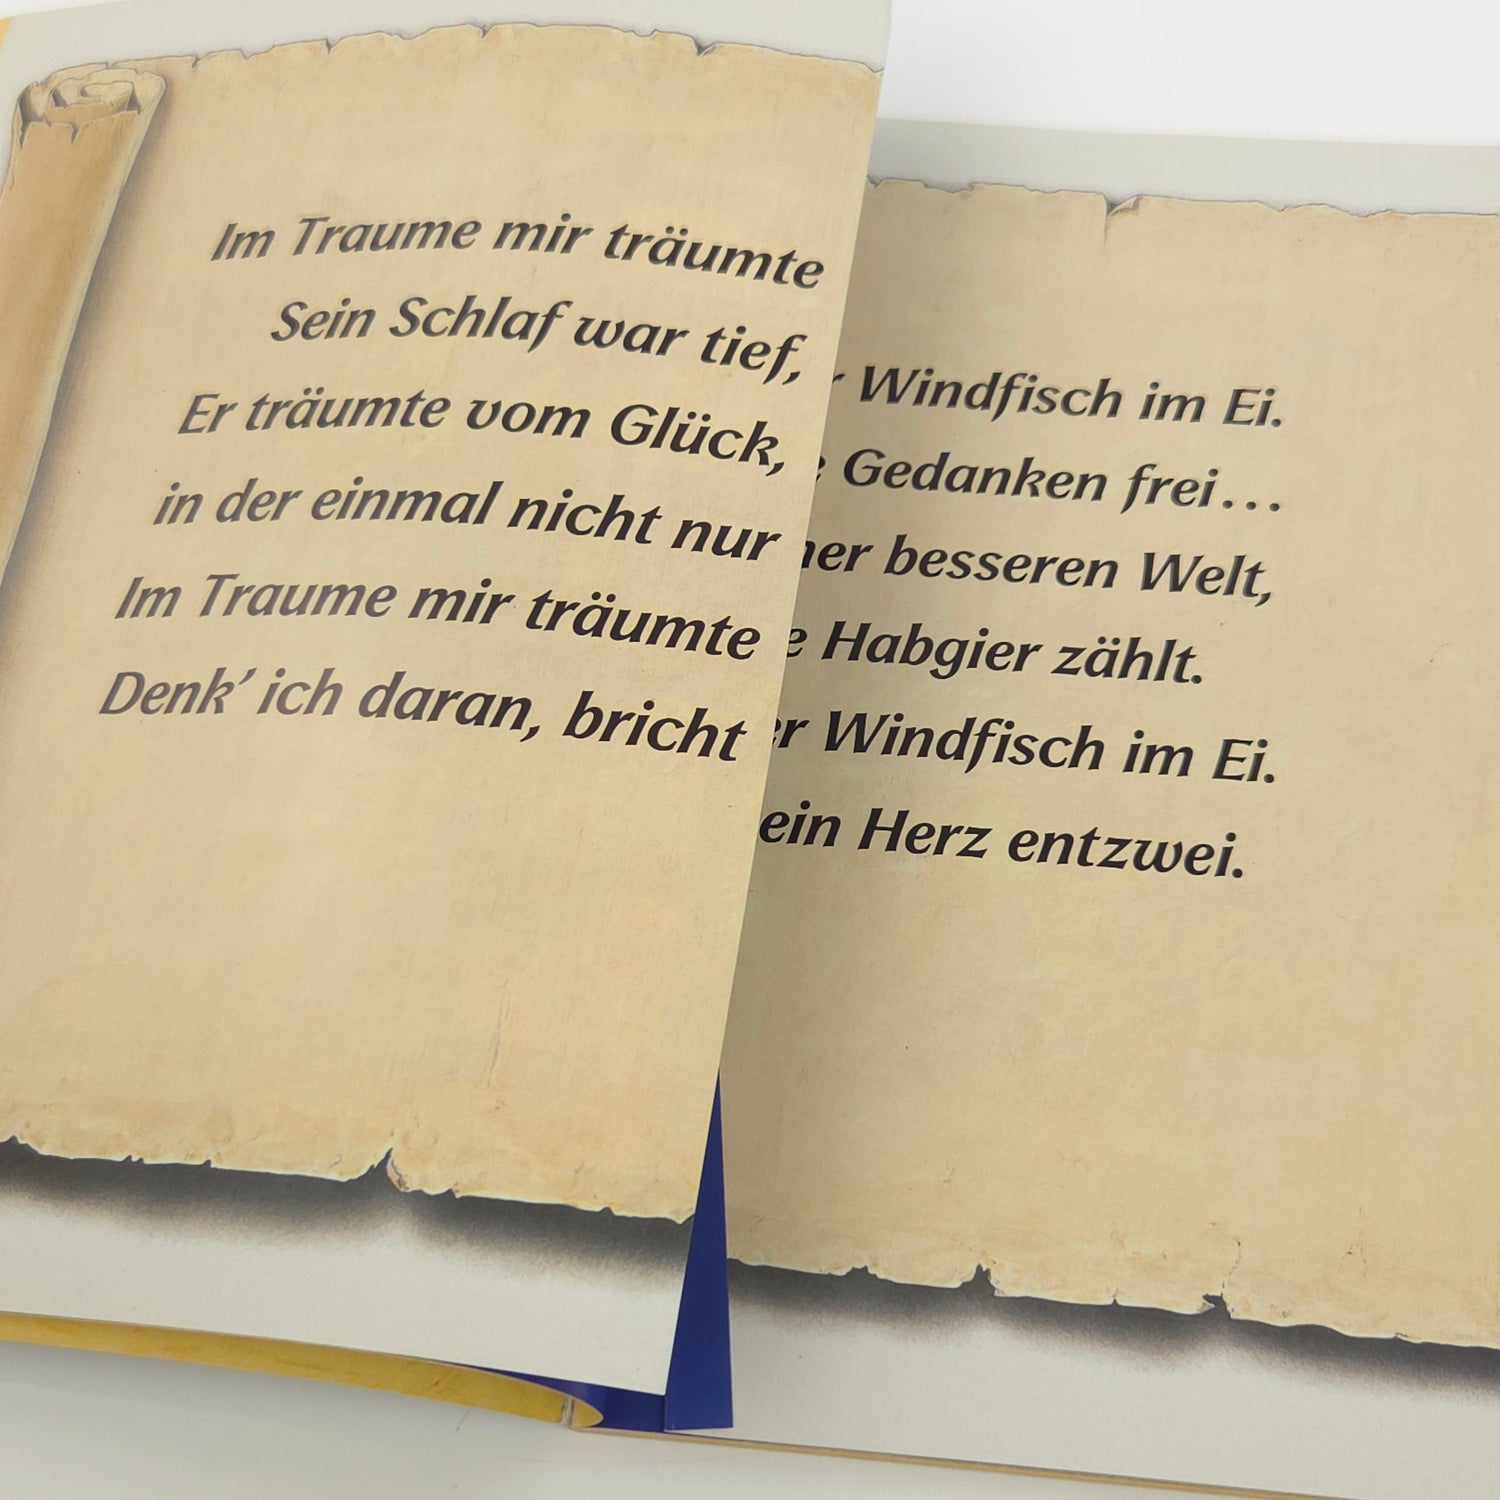 Im Traume mir träumte
Sein Schlaf war tief,
Er träumte vom Glück,
in der einmal nicht nur
Im Traume mir träumte
Denk’ ich daran, bricht
Windfisch im Ei.
Gedanken frei…
besseren Welt,
Habgier zählt.
Windfisch im Ei.
Herz entzwei.